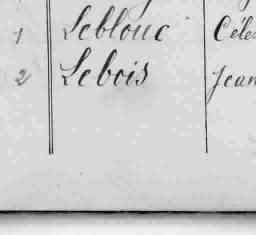 1 Leblouc Céles
2 Lebois Jean